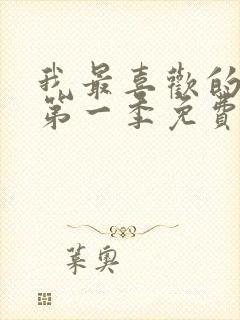 我最喜歡的
第一季免費
葉奧